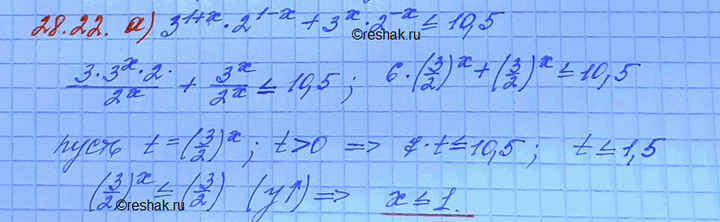 28.22. а) 3^{1+x} · 2^{1-x} + 3^x · 2^{-x} ≤ 10,5
©reshak.ru
3·3^x·2· / 2^x + 3^x / 2^x ≤ 10,5 ; 6·(3/2)^x + (3/2)^x ≤ 10,5
пусть t = (3/2)^x ; t > 0 => 7·t ≤ 10,5 ; t ≤ 1,5
(3/2)^x ≤ (3/2) (y↑) => x ≤ 1.
©reshak.ru